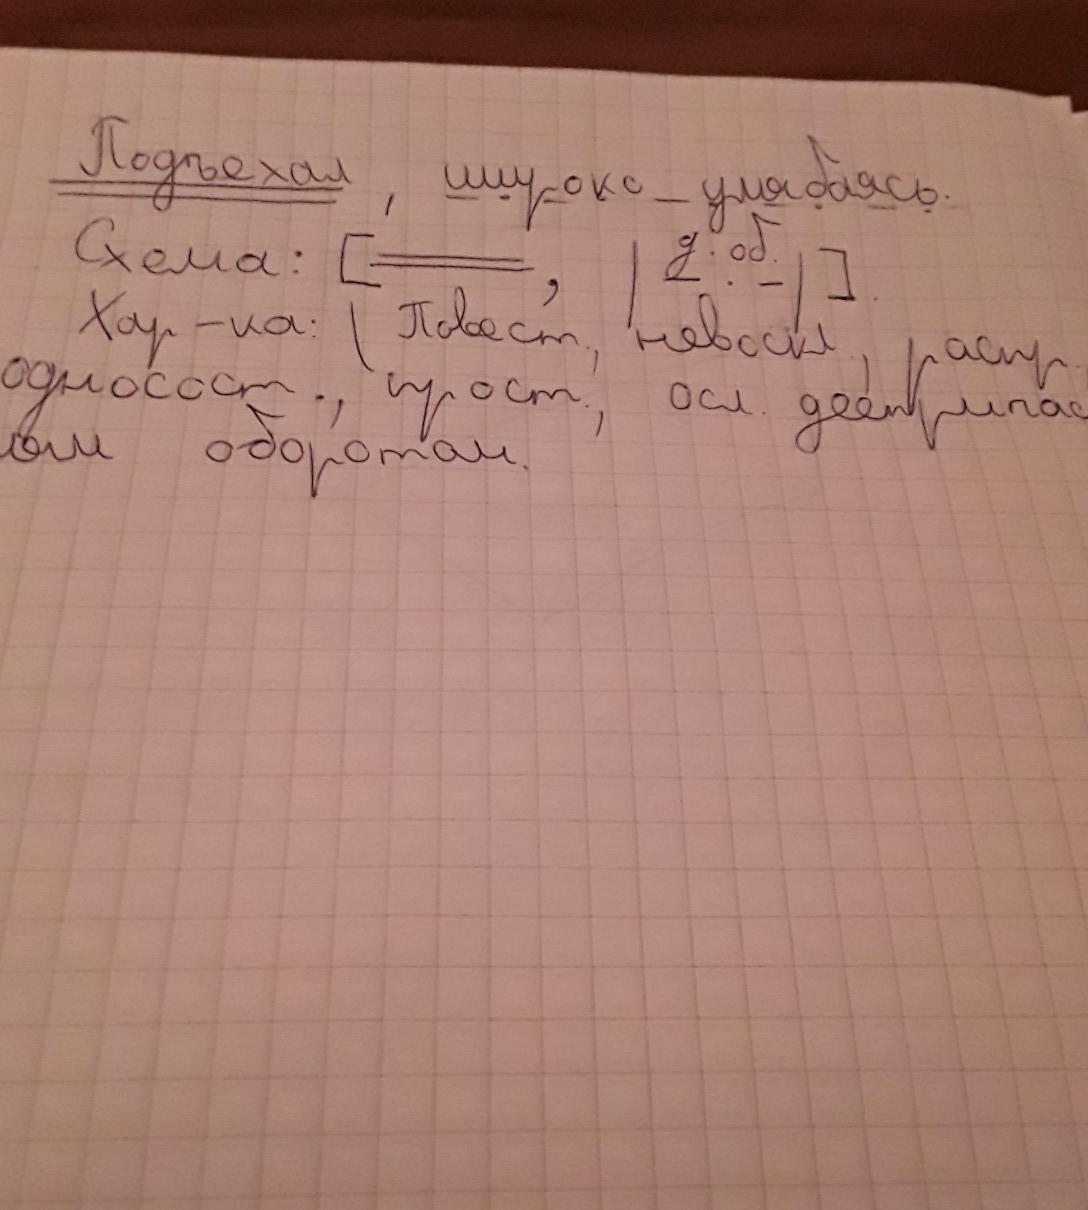 Подъехал, широко улыбаясь.
Схема: [══, | д. об. |].
Хар-ка: (Повест., невоскл., распр.
односост., прост., осл. дееприча
ым оборотом.